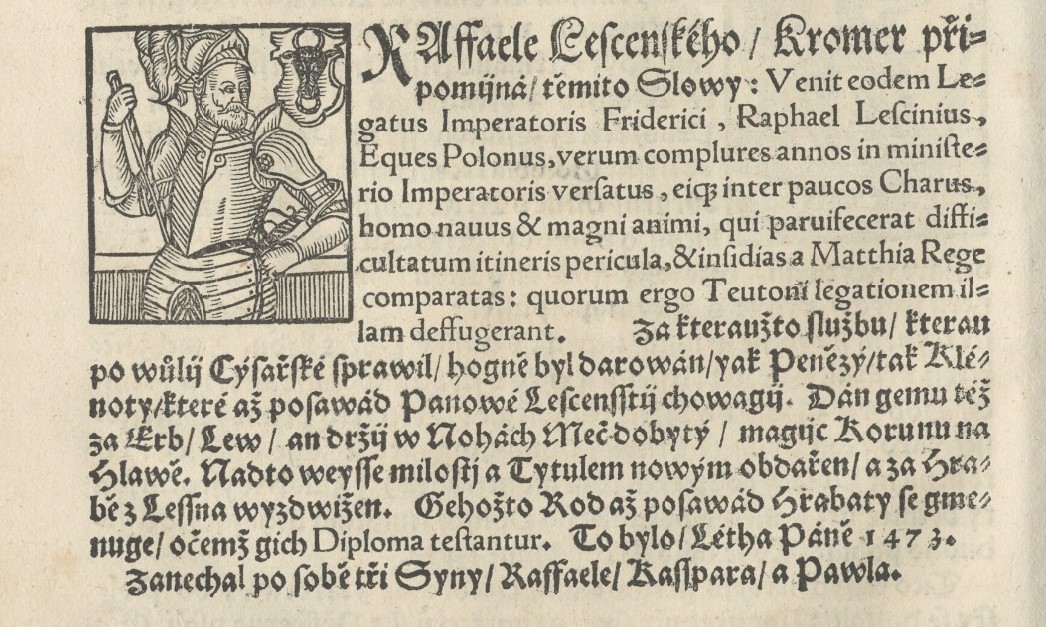 RAffaele Lescenského / Kromer při-
pomijná / těmito Slowy : Venit eodem Le-
gatus Imperatoris Friderici , Raphael Lescinius,
Eques Polonus, verum complures annos in ministe-
rio Imperatoris versatus , eiq; inter paucos Charus,
homo nauus & magni animi, qui paruifecerat diffi-
cultatum itineris pericula, & insidias a Matthia Rege
comparatas : quorum ergo Teutoni legationem il-
lam deffugerant. Za kteraužto službu / kterau
po wůlij Cýsařské sprawil / hogně byl darowán / yak Penězý / tak Klé-
noty / které až posawád Panowé Lescensstij chowagij. Dán gemu též
za Erb / Lew / an držij w Nohách Meč dobytý / magijc Korunu na
Hlawě. Nadto weysse milostj a Tytulem nowým obdařen / a za Hra-
bě z Lessna wyzdwižen. Gehožto Rod až posawád Hrabaty se gme-
nuge / očemž gich Diploma testantur. To bylo / Létha Páně 1473.
Zanechal po sobě tři Syny / Raffaele / Kasspara / a Pawla.